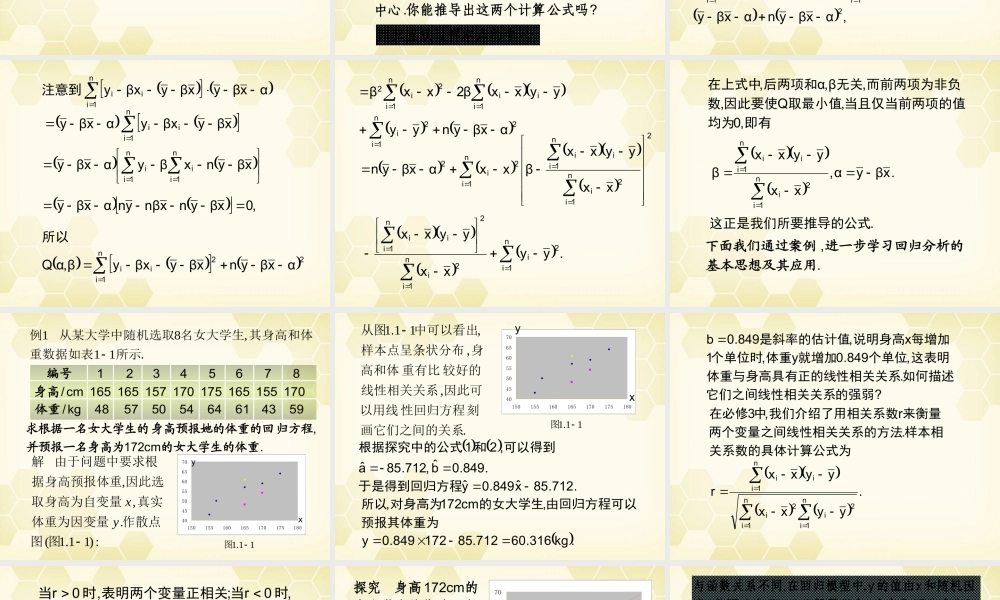 中心.你能推导出这两个计算公式吗?
(y̅-βx̅-α)+n(y̅-βx̅-α)²,
注意到 ∑ᵢ₌₁ⁿ[yᵢ-βxᵢ-(y̅-βx̅)]·(y̅-βx̅-α)
=(y̅-βx̅-α)∑ᵢ₌₁ⁿ[yᵢ-βxᵢ-(y̅-βx̅)]
=(y̅-βx̅-α)[∑ᵢ₌₁ⁿyᵢ-β∑ᵢ₌₁ⁿxᵢ-n(y̅-βx̅)]
=(y̅-βx̅-α)[ny̅-nβx̅-n(y̅-βx̅)]=0,
所以
Q(α,β)=∑ᵢ₌₁ⁿ[yᵢ-βxᵢ-(y̅-βx̅)]²+n(y̅-βx̅-α)²
=β²∑ᵢ₌₁ⁿ(xᵢ-x̅)²-2β∑ᵢ₌₁ⁿ(xᵢ-x̅)(yᵢ-y̅)
+∑ᵢ₌₁ⁿ(yᵢ-y̅)²+n(y̅-βx̅-α)²
=n(y̅-βx̅-α)²+∑ᵢ₌₁ⁿ(xᵢ-x̅)²[β-∑ᵢ₌₁ⁿ(xᵢ-x̅)(yᵢ-y̅)/∑ᵢ₌₁ⁿ(xᵢ-x̅)²]²
-[∑ᵢ₌₁ⁿ(xᵢ-x̅)(yᵢ-y̅)]²/∑ᵢ₌₁ⁿ(xᵢ-x̅)²+∑ᵢ₌₁ⁿ(yᵢ-y̅)².
在上式中,后两项和α,β无关,而前两项为非负
数,因此要使Q取最小值,当且仅当前两项的值
均为0,即有
β=∑ᵢ₌₁ⁿ(xᵢ-x̅)(yᵢ-y̅)/∑ᵢ₌₁ⁿ(xᵢ-x̅)²,α=y̅-βx̅.
这正是我们所要推导的公式.
下面我们通过案例,进一步学习回归分析的
基本思想及其应用.
例1 从某大学中随机选取8名女大学生,其身高和体
重数据如表1-1所示.
编号 1 2 3 4 5 6 7 8
身高/cm 165 165 157 170 175 165 155 170
体重/kg 48 57 50 54 64 61 43 59
求根据一名女大学生的身高预报她的体重的回归方程,
并预报一名身高为172cm的女大学生的体重.
解 由于问题中要求根
据身高预报体重,因此选
取身高为自变量x,真实
体重为因变量y.作散点
图(图1.1-1):
y
70
65
60
55
50
45
40
150 155 160 165 170 175 180
x
图1.1-1
从图1.1-1中可以看出,
样本点呈条状分布,身
高和体重有比较好的
线性相关关系,因此可
以用线性回归方程刻
画它们之间的关系.
y
70
65
60
55
50
45
40
150 155 160 165 170 175 180
x
图1.1-1
根据探究中的公式(1)和(2),可以得到
â=-85.712,b̂=0.849.
于是得到回归方程ŷ=0.849x-85.712.
所以,对身高为172cm的女大学生,由回归方程可以
预报其体重为
y=0.849×172-85.712=60.316(kg)
b=0.849是斜率的估计值,说明身高x每增加
1个单位时,体重y就增加0.849个单位,这表明
体重与身高具有正的线性相关关系.如何描述
它们之间线性相关关系的强弱?
在必修3中,我们介绍了用相关系数r来衡量
两个变量之间线性相关关系的方法.样本相
关系数的具体计算公式为
r=∑ᵢ₌₁ⁿ(xᵢ-x̅)(yᵢ-y̅)/√(∑ᵢ₌₁ⁿ(xᵢ-x̅)²∑ᵢ₌₁ⁿ(yᵢ-y̅)²).
当r>0时,表明两个变量正相关;当r<0时,
探究 身高172cm的
70
与函数关系不同,在回归模型中,y的值由x和随机因